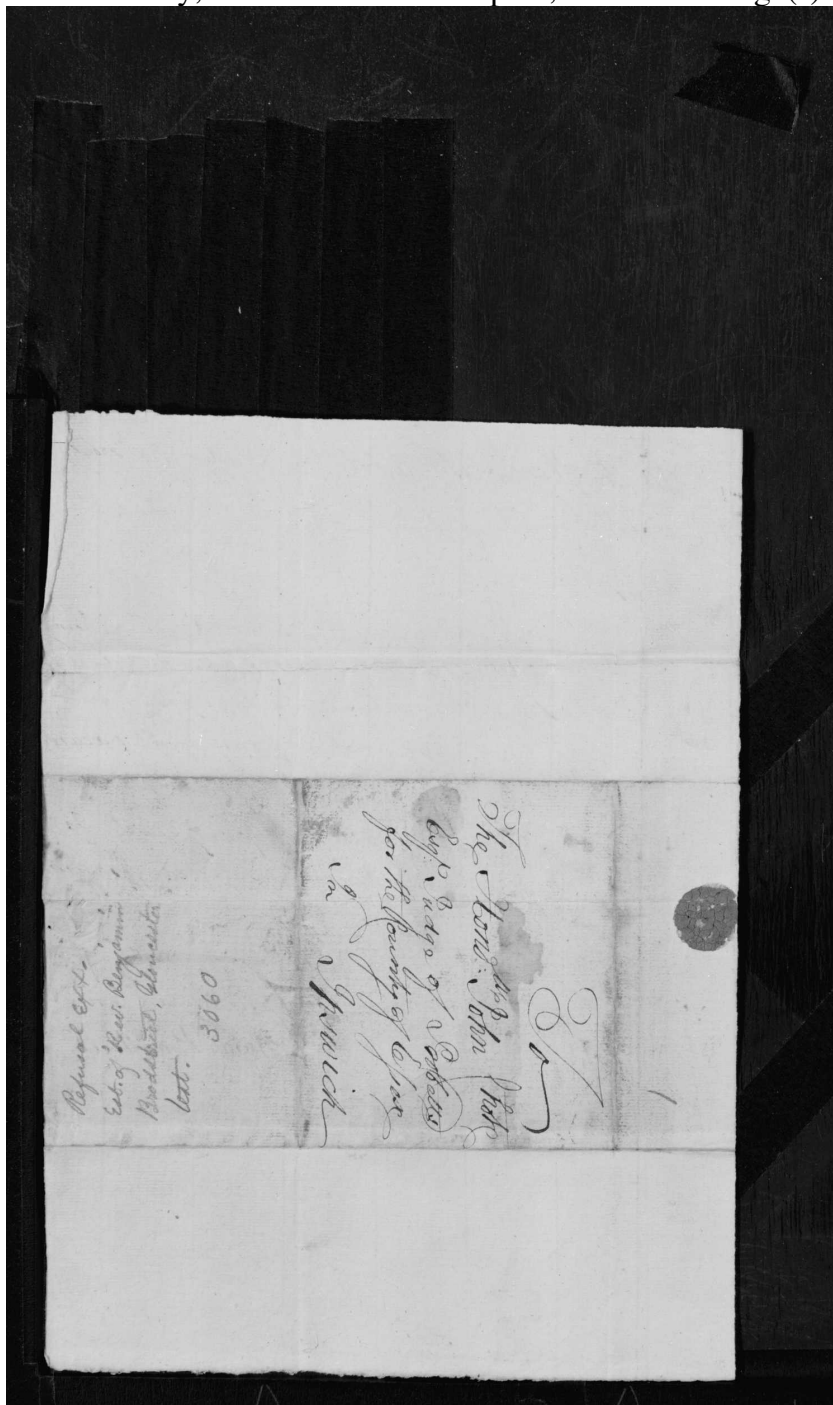 To
The Honᵇˡᵉ John Choate
Esqʳ Judge of Probate
for the County of Essex
In Ipswich
Refusal Exx.
Est. of Rev. Benjamin
Bradstreet, Gloucester
text.
3060